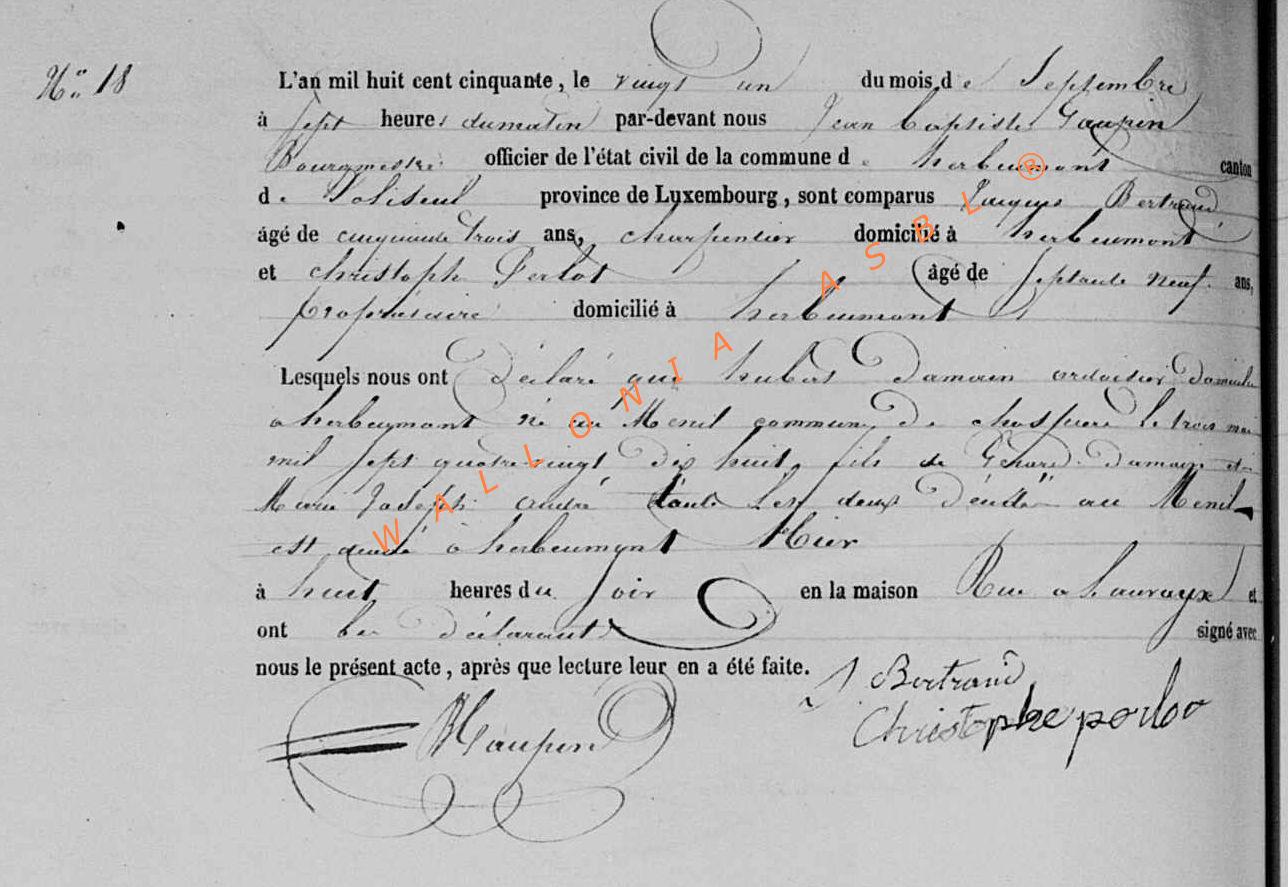 N° 18
L'an mil huit cent cinquante, le vingt un du mois de Septembre
à sept heures du matin par-devant nous Jean Baptiste Gaupin
Bourgmestre officier de l'état civil de la commune de herbeumont canton
de Paliseul province de Luxembourg, sont comparus Jacques Bertrand
âgé de cinquante trois ans, charpentier domicilié à herbeumont
et christophe Perlot âgé de septante neuf ans,
propriétaire domicilié à herbeumont
Lesquels nous ont déclaré que hubert Damain ardoisier domicilié
a herbeumont né au Menil commune de le trois mai
mil sept quatre vingt dix huit, fils de Gerard Damain et
Marie Joseph andré tout les deux décédé au Menil
est décédé a herbeumont Hier
à huit heures du soir en la maison Rue a et
ont les déclarants signé avec
nous le présent acte, après que lecture leur en a été faite.
J. Bertrand
Gaupin
Christophe perlot
WALLONIA ASBL ®